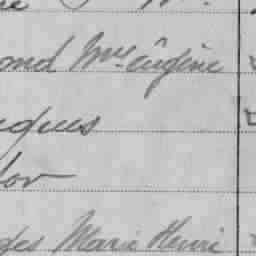 ond Mce Eugène
cques
dor
ges Marie Henri